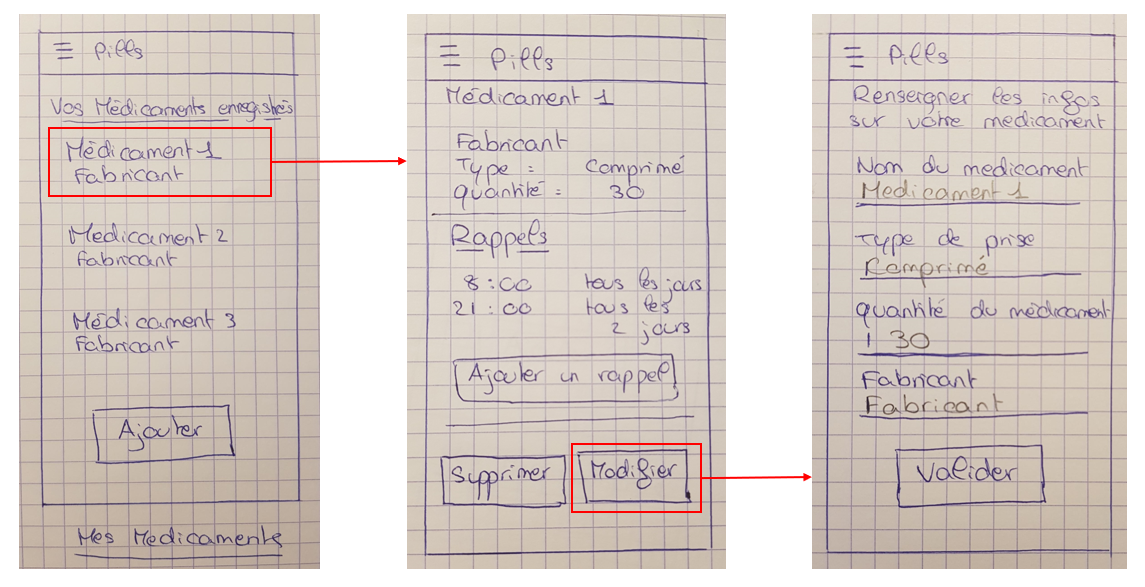 Pills
Vos Médicaments enregistrés
Médicament 1
Fabricant
Medicament 2
Fabricant
Médicament 3
Fabricant
Ajouter
Mes Medicaments
Pills
Médicament 1
Fabricant
Type : Comprimé
quantité : 30
Rappels
8:00 tous les jours
21:00 tous les
2 jours
Ajouter un rappel
Supprimer
Modifier
Pills
Renseigner les infos
sur votre medicament
Nom du medicament
Medicament 1
Type de prise
Comprimé
quantité du médicament
30
Fabricant
Fabricant
Valider